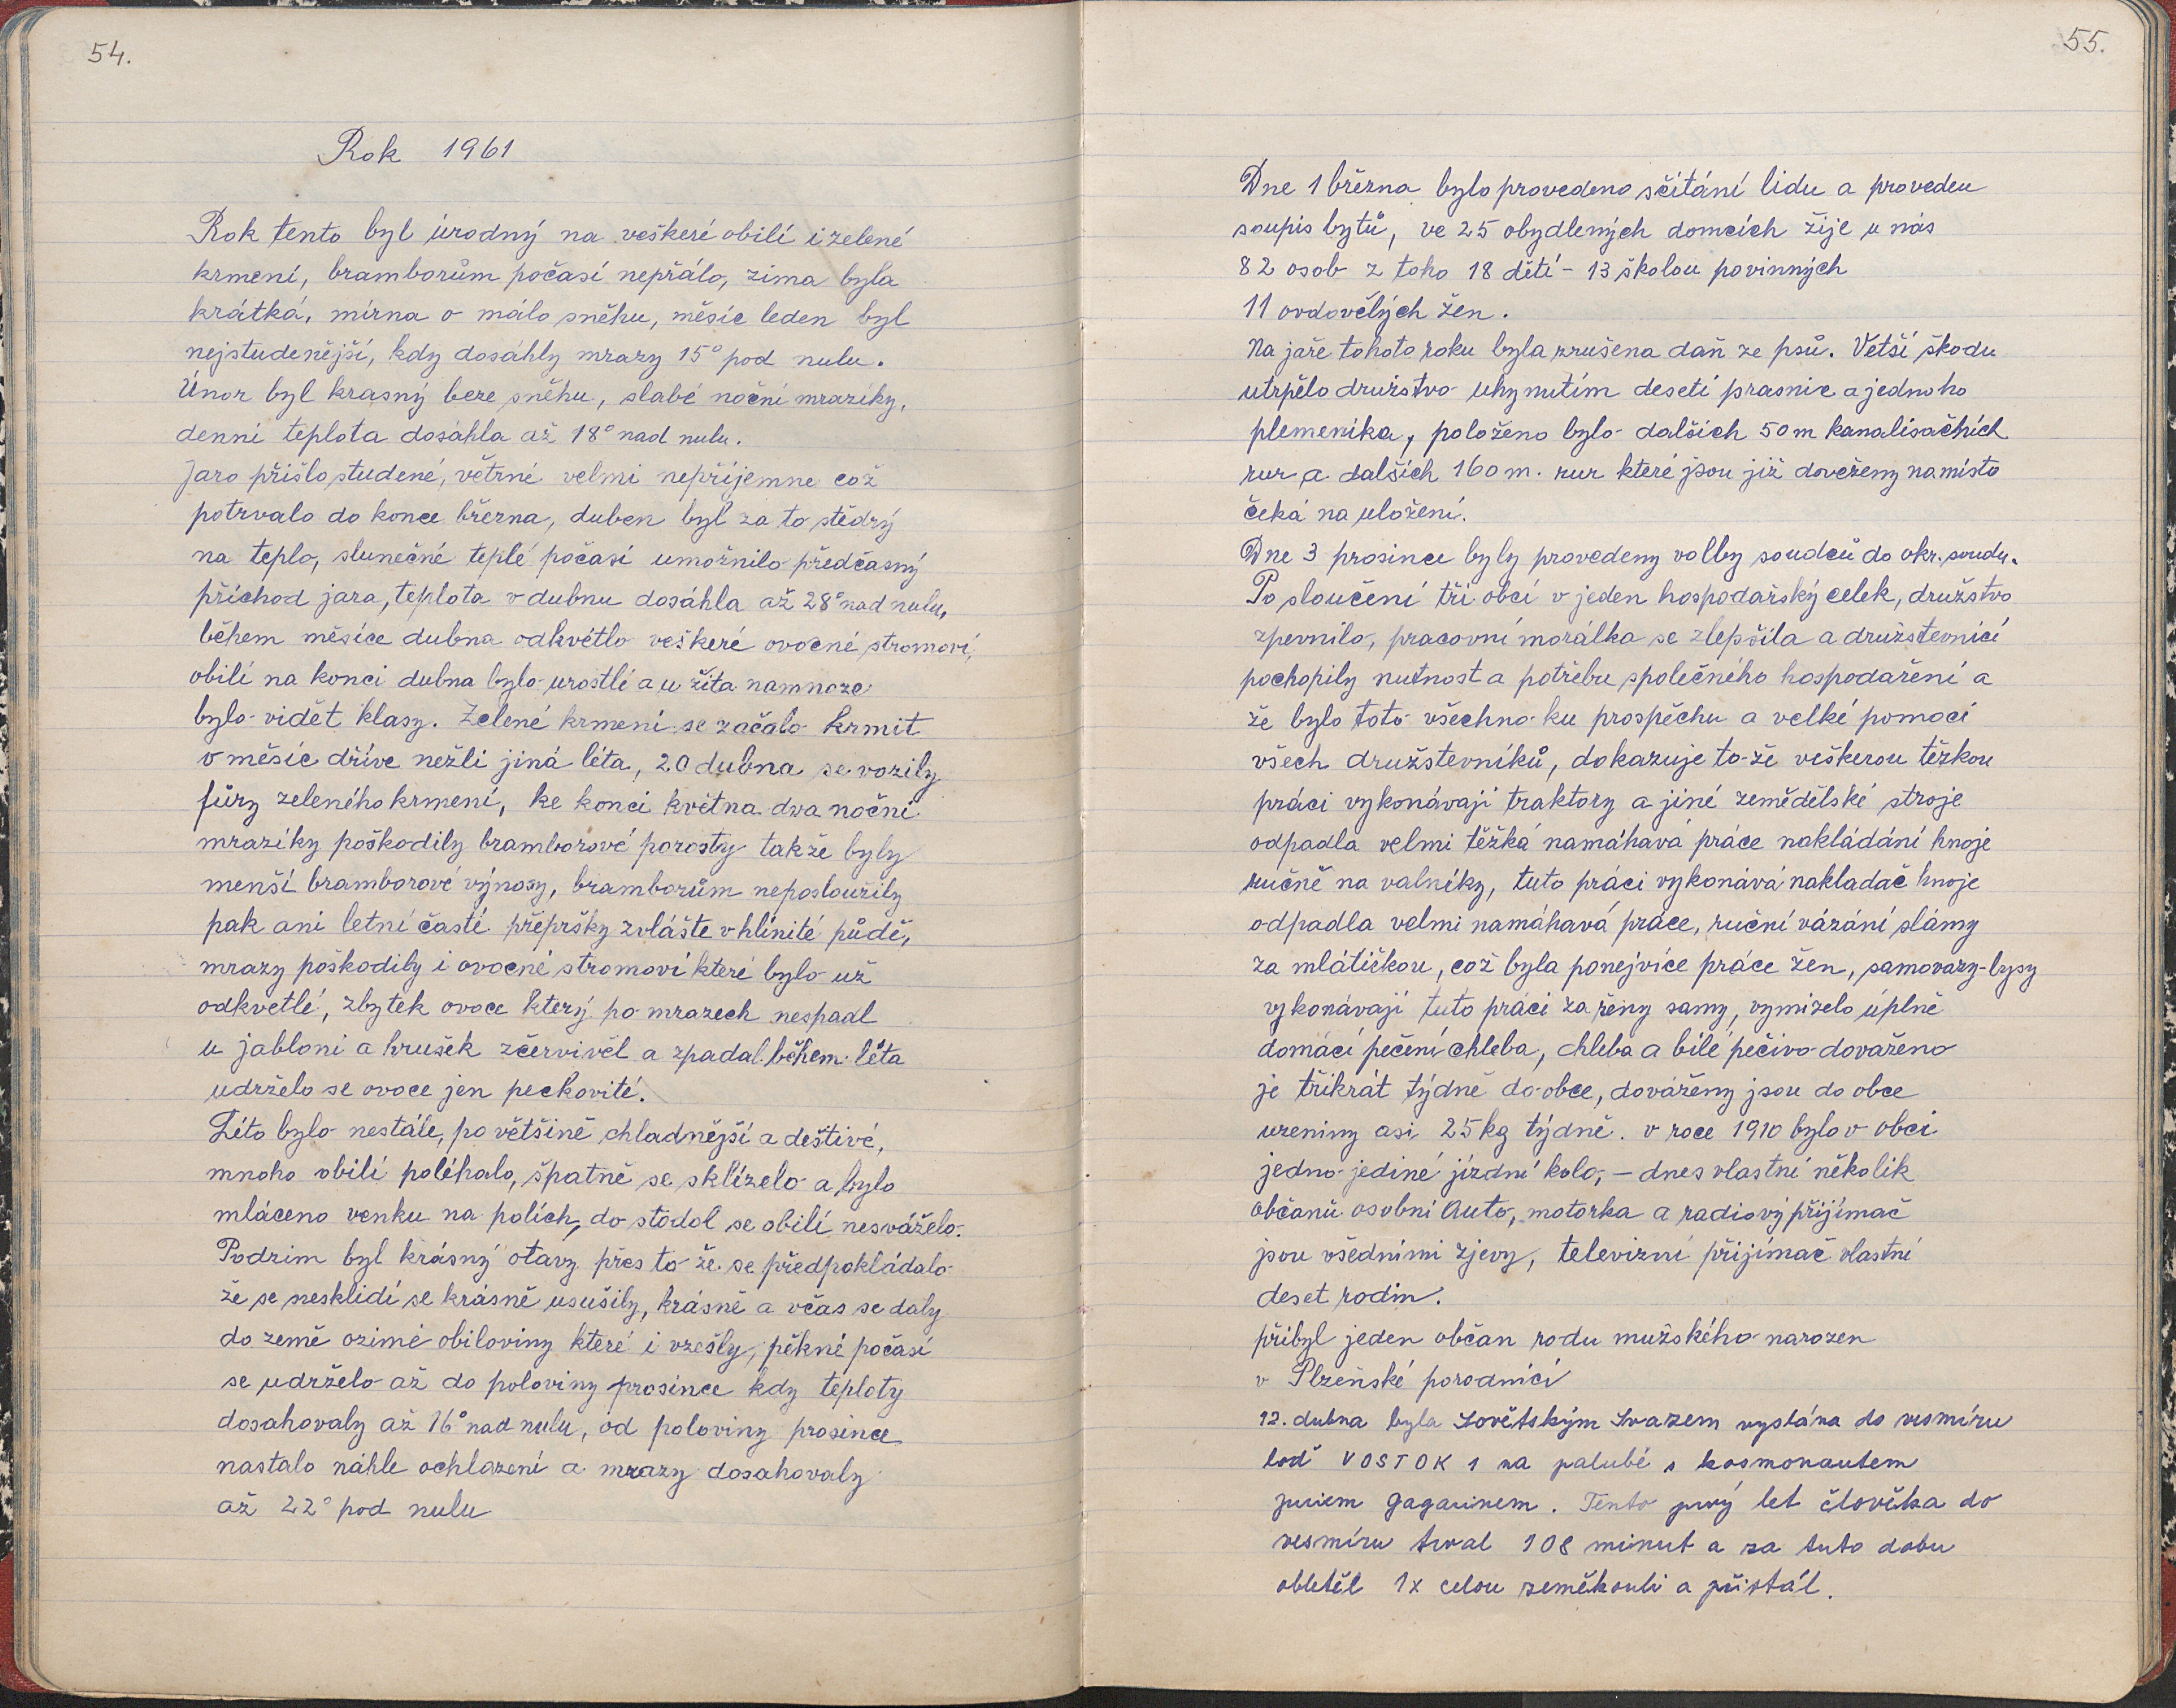 54.
Rok 1961
Rok tento byl úrodný na veškeré obilí i zelené
krmení, bramborům počasí nepřálo, zima byla
krátká, mírna o málo sněhu, měsíc leden byl
nejstudenější, kdy dosáhly mrazy 15° pod nulu.
Únor byl krasný beze sněhu, slabé noční mrazíky,
denní teplota dosáhla až 18° nad nulu.
Jaro přišlo studené, větrné velmi nepříjemne což
potrvalo do konce března, duben byl za to štědrý
na teplo, slunečné teplé počasí umožnilo předčasný
příchod jara, teplota v dubnu dosáhla až 28° nad nulu,
během měsíce dubna odkvétlo veškeré ovocné stromoví,
obilí na konci dubna bylo urostlé a u žita namnoze
bylo vidět klasy. Zelené krmení se začalo krmit
o měsíc dříve nežli jiná léta, 20 dubna se vozily
fůry zeleného krmení, ke konci května dva noční
mrazíky poškodily bramborové porosty takže byly
menší bramborové výnosy, bramborům neposloužily
pak ani letní časté přepršky zvláště v hlínité půdě,
mrazy poškodily i ovocné stromoví které bylo už
odkvetlé, zbytek ovoce který po mrazech nespadl
u jabloni a hrušek zčervivěl a zpadal během léta
udrželo se ovoce jen peckovité.
Léto bylo nestálé, po většině chladnější a deštivé,
mnoho obilí poléhalo, špatně se sklízelo a bylo
mláceno venku na polích, do stodol se obilí nesváželo.
Podzim byl krásný otavy přes to že se předpokládalo
že se nesklidí se krásně usušily, krásně a včas se daly
do země ozimé obiloviny které i vzešly, pěkné počasí
se udrželo až do poloviny prosince kdy teploty
dosahovaly až 16° nad nulu, od poloviny prosince
nastalo náhle ochlazení a mrazy dosahovaly
až 22° pod nulu
55.
Dne 1 března bylo provedeno sčítání lidu a proveden
soupis bytů, ve 25 obydlených domcích žije u nás
82 osob z toho 18 dětí - 13 školou povinných
11 ovdovělých žen.
Na jaře tohoto roku byla zrušena daň ze psů. Vetší škodu
utrpělo družstvo uhynutím deseti prasnic a jednoho
plemeníka, položeno bylo dalších 50 m kanalisačních
rur a dalších 160 m. rur které jsou již dovezeny na místo
čeká na uložení.
Dne 3 prosince byly provedeny volby soudců do okr. soudu.
Po sloučení tří obcí v jeden hospodařský celek, družstvo
zpevnilo, pracovní morálka se zlepšila a družstevníci
pochopily nutnost a potřebu společného hospodaření a
že bylo toto všechno ku prospěchu a velké pomoci
všech družstevníků, dokazuje to že veškerou těžkou
práci vykonávají traktory a jiné zemědělské stroje
odpadla velmi těžká namáhavá práce nakládání hnoje
ručně na valníky, tuto práci vykonává nakladač hnoje
odpadla velmi namáhavá práce, ruční vázání slámy
za mlátičkou, což byla ponejvíce práce žen, samovazy-lysy
vykonávají tuto práci za ženy samy, vymizelo úplně
domácí pečení chleba, chleba a bílé pečivo dováženo
je třikrát týdně do obce, dováženy jsou do obce
uzeniny asi 25 kg týdně. v roce 1910 bylo v obci
jedno jediné jízdní kolo, – dnes vlastní několik
občanů osobní Auto, motorka a radiový přijímač
jsou všedními zjevy, televizní přijímač vlastní
deset rodin.
přibyl jeden občan rodu mužského narozen
v Plzeňské porodnici
12. dubna byla Sovětským Svazem vyslána do vesmíru
loď VOSTOK 1 na palubě s kosmonautem
Juriem Gagarinem. Tento prvý let člověka do
vesmíru trval 108 minut a za tuto dobu
obletěl 1x celou zeměkouli a přistál.